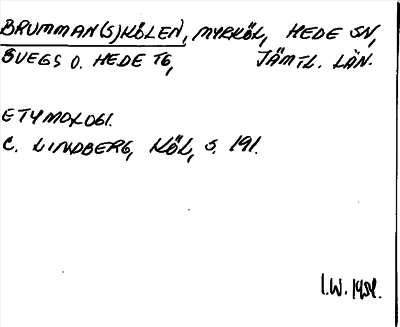 BRUMMAN(S)KÖLEN, MYRKÖL, HEDE SN,
SVEGS O. HEDE TG, JÄMTL. LÄN.
ETYMOLOGI.
C. LINDBERG, KÖL, S. 191.
I.W.